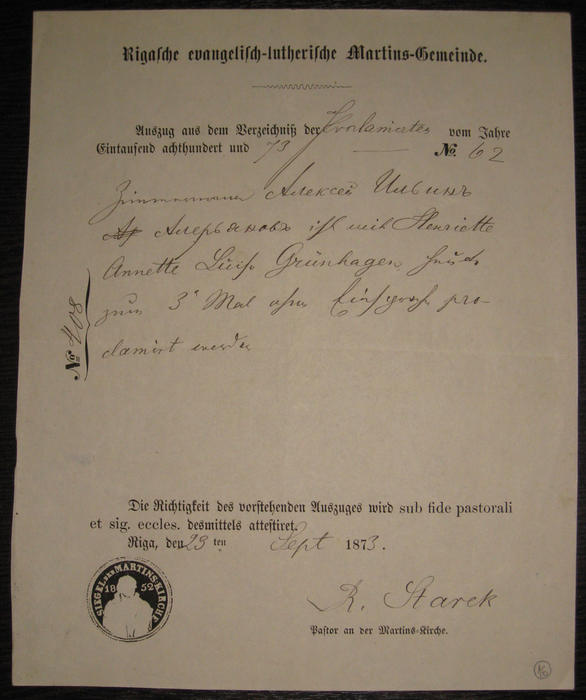 Rigasche evangelisch-lutherische Martins-Gemeinde.
Auszug aus dem Verzeichniß der Proclamirten vom Jahre
Eintausend achthundert und 73 — № 62
Zimmermann Алексей Ильинъ
ist mit Henriette
Annette Luise Grünhagen, heute
zum 3ⁿ Mal ohne Einsprache pro-
clamirt worden
№ 408
Die Richtigkeit des vorstehenden Auszuges wird sub fide pastorali
et sig. eccles. desmittels attestiret.
Riga, den 23 ten Sept 1873.
SIEGEL DER MARTINS-KIRCHE
1852
R. Starck
Pastor an der Martins-Kirche.